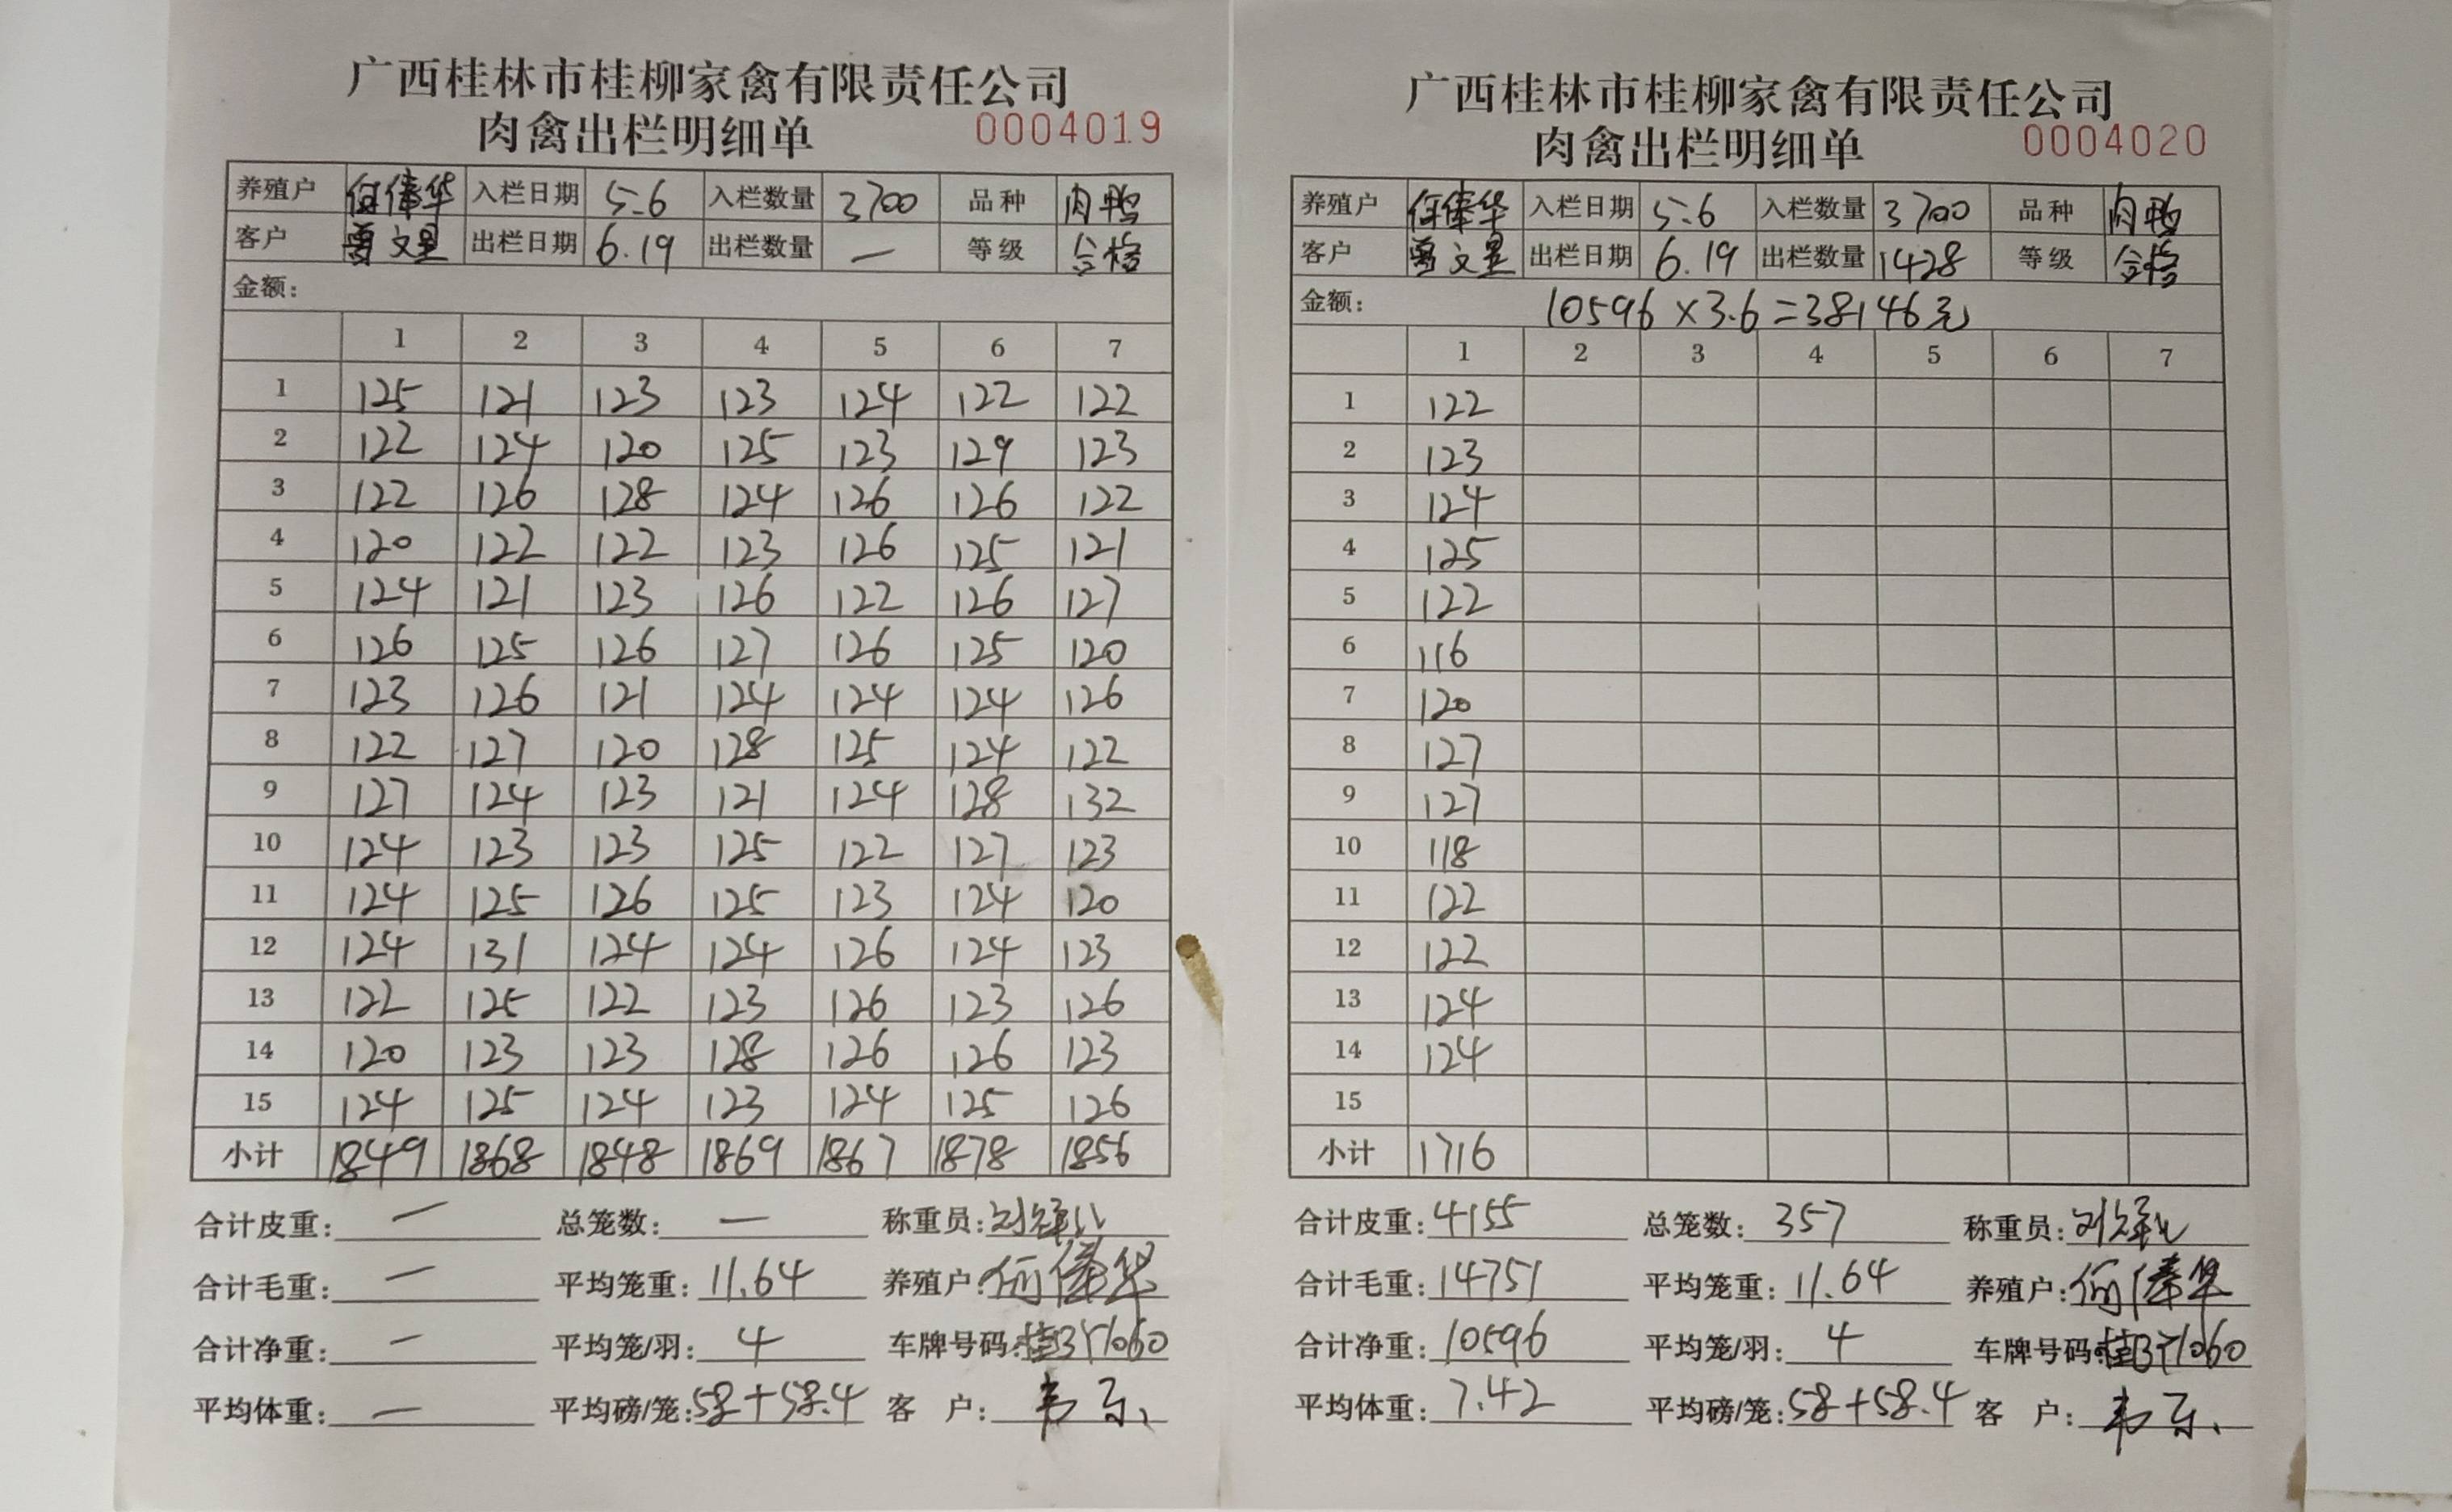 广西桂林市桂柳家禽有限责任公司
肉禽出栏明细单 0004019
养殖户 何俸华 入栏日期 5.6 入栏数量 3700 品种 肉鸭
客户 曾文星 出栏日期 6.19 出栏数量 — 等级 合格
金额：
1 2 3 4 5 6 7
1 125 121 123 123 124 122 122
2 122 124 120 125 123 129 123
3 122 126 128 124 126 126 122
4 120 122 122 123 126 125 121
5 124 121 123 126 122 126 127
6 126 125 126 127 126 125 120
7 123 126 121 124 124 124 126
8 122 127 120 128 125 124 122
9 127 124 123 121 124 128 132
10 124 123 123 125 122 127 123
11 124 125 126 125 123 124 120
12 124 131 124 124 126 124 123
13 122 125 122 123 126 123 126
14 120 123 123 128 126 126 123
15 124 125 124 123 124 125 126
小计 1849 1868 1848 1869 1867 1878 1856
合计皮重：— 总笼数：— 称重员：
合计毛重：— 平均笼重：11.64 养殖户：何俸华
合计净重：— 平均笼/羽：4 车牌号码：
平均体重：— 平均磅/笼：58+58.4 客 户：
广西桂林市桂柳家禽有限责任公司
肉禽出栏明细单 0004020
养殖户 何俸华 入栏日期 5.6 入栏数量 3700 品种 肉鸭
客户 曾文星 出栏日期 6.19 出栏数量 1428 等级 合格
金额： 10596×3.6=38146元
1 2 3 4 5 6 7
1 122
2 123
3 124
4 125
5 122
6 116
7 120
8 127
9 127
10 118
11 122
12 122
13 124
14 124
15
小计 1716
合计皮重：4155 总笼数：357 称重员：
合计毛重：14751 平均笼重：11.64 养殖户：何俸华
合计净重：10596 平均笼/羽：4 车牌号码：
平均体重：7.42 平均磅/笼：58+58.4 客 户：